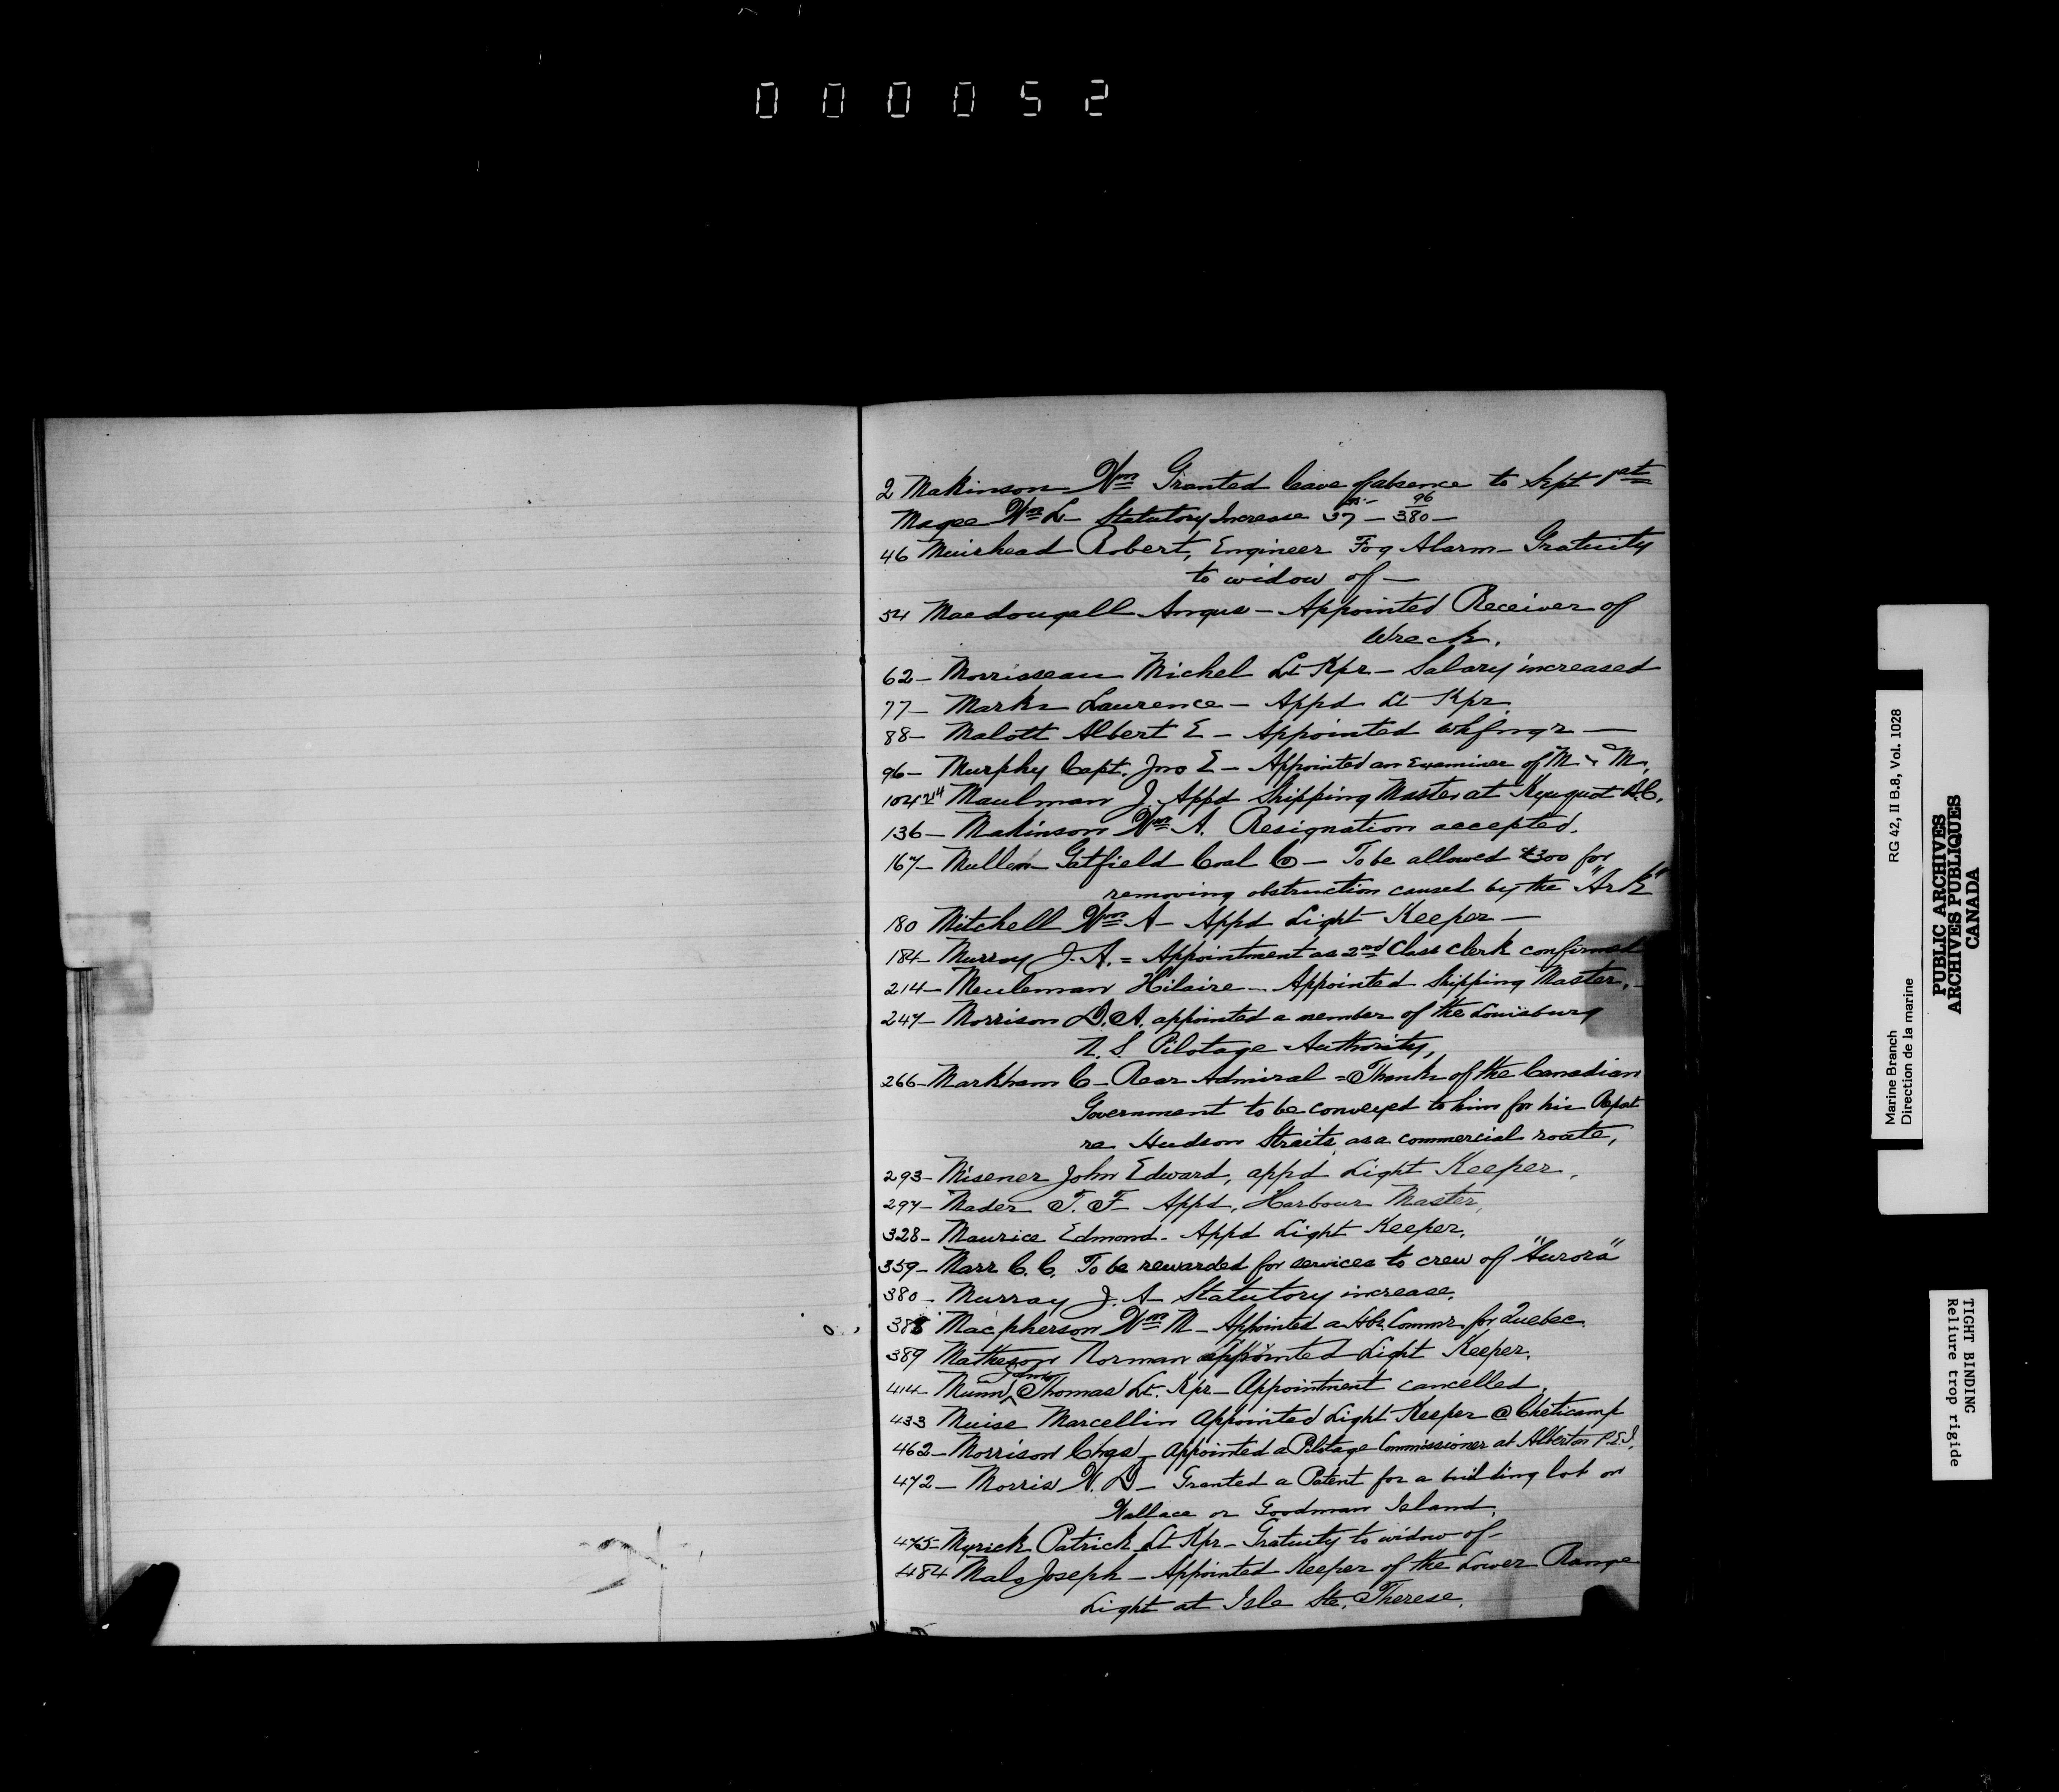 000052
2 Makinson Wm Granted leave of absence to Sept 1st
Magee Wm L - Statutory Increase 37 - 380 - 96
46 Muirhead Robert, Engineer Fog Alarm - Gratuity
to widow of -
54 Macdougall Angus - Appointed Receiver of
Wreck.
62 - Morrisseau Michel Lt Kpr - Salary increased
77 - Marks Laurence - Appd Lt Kpr.
88 - Malott Albert E - Appointed whfngr -
96 - Murphy Capt. Jno E - Appointed an Examiner of M & M.
104 214 Maulman J. Appd Shipping Master at Kyuquot B.C.
136 - Makinson Wm A. Resignation accepted.
167 - Mullen Gatfield Coal Co - To be allowed $300 for
removing obstruction caused by the "Ark"
180 Mitchell Wm A - Appd Light Keeper -
184 - Murray J. A. = Appointment as 2nd Class Clerk confirmed
214 - Meuleman Hilaire - Appointed Shipping Master. -
247 - Morrison D. A. appointed a member of the Louisburg
N. S. Pilotage Authority,
266 - Markham C - Rear Admiral = Thanks of the Canadian
Government to be conveyed to him for his Report
re Hudson Straits as a commercial route,
293 - Misener John Edward, appd Light Keeper,
297 - Mader T. F - Appd, Harbour Master,
328 - Maurice Edmond - Appd Light Keeper,
359 - Marr C. C. To be rewarded for services to crew of "Aurora"
380 - Murray J. A - Statutory increase.
388 Macpherson Wm M - Appointed a Hbr. Commr. for Quebec.
389 Matheson Norman appointed Light Keeper.
414 - Munn, Thomas Lt. Kpr - Appointment cancelled.
433 Muise Marcellin Appointed Light Keeper @ Cheticamp
462 - Morrison Chas - Appointed a Pilotage Commissioner at Alberton P.E.I.
472 - Morris W. D - Granted a Patent for a building lot on
Wallace or Goodman Island.
475 - Myrick Patrick Lt Kpr - Gratuity to widow of -
484 Malo Joseph - Appointed Keeper of the Lower Range
Light at Isle Ste. Therese.
Marine Branch RG 42, II B.8, Vol. 1028
Direction de la marine
PUBLIC ARCHIVES
ARCHIVES PUBLIQUES
CANADA
TIGHT BINDING
Reliure trop rigide